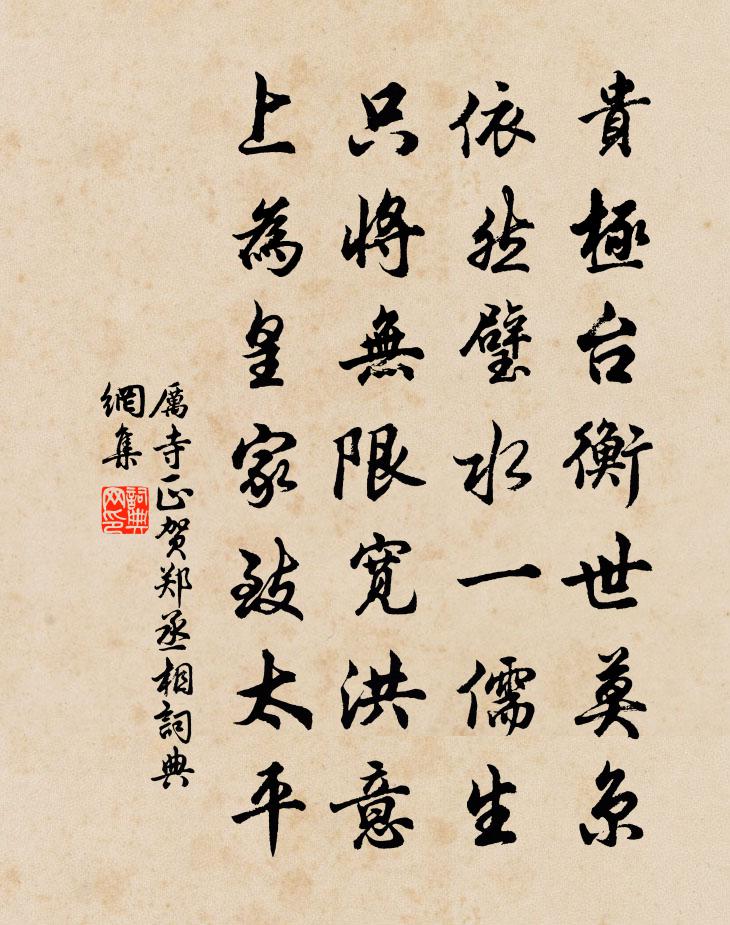 貴極台衡世莫京
依然璧水一儒生
只將無限寬洪意
上為皇家致太平
厲寺正贺郑丞相詞典
網集
詞典
网印